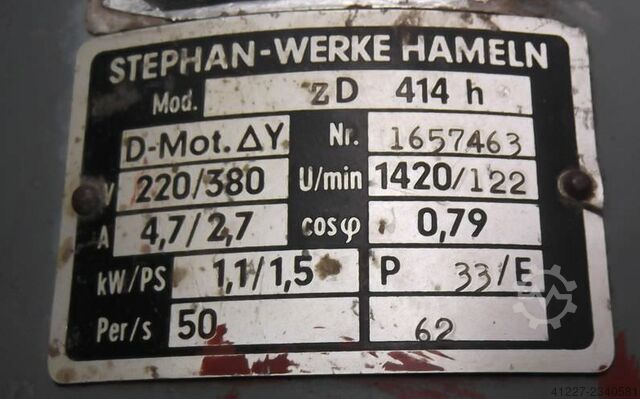 STEPHAN-WERKE HAMELN
Mod. ZD 414 h
D-Mot. ΔY Nr. 1657463
V 220/380 U/min 1420/122
A 4,7/2,7 cosφ 0,79
kW/PS 1,1/1,5 P 33/E
Per/s 50 62
41227-2340581